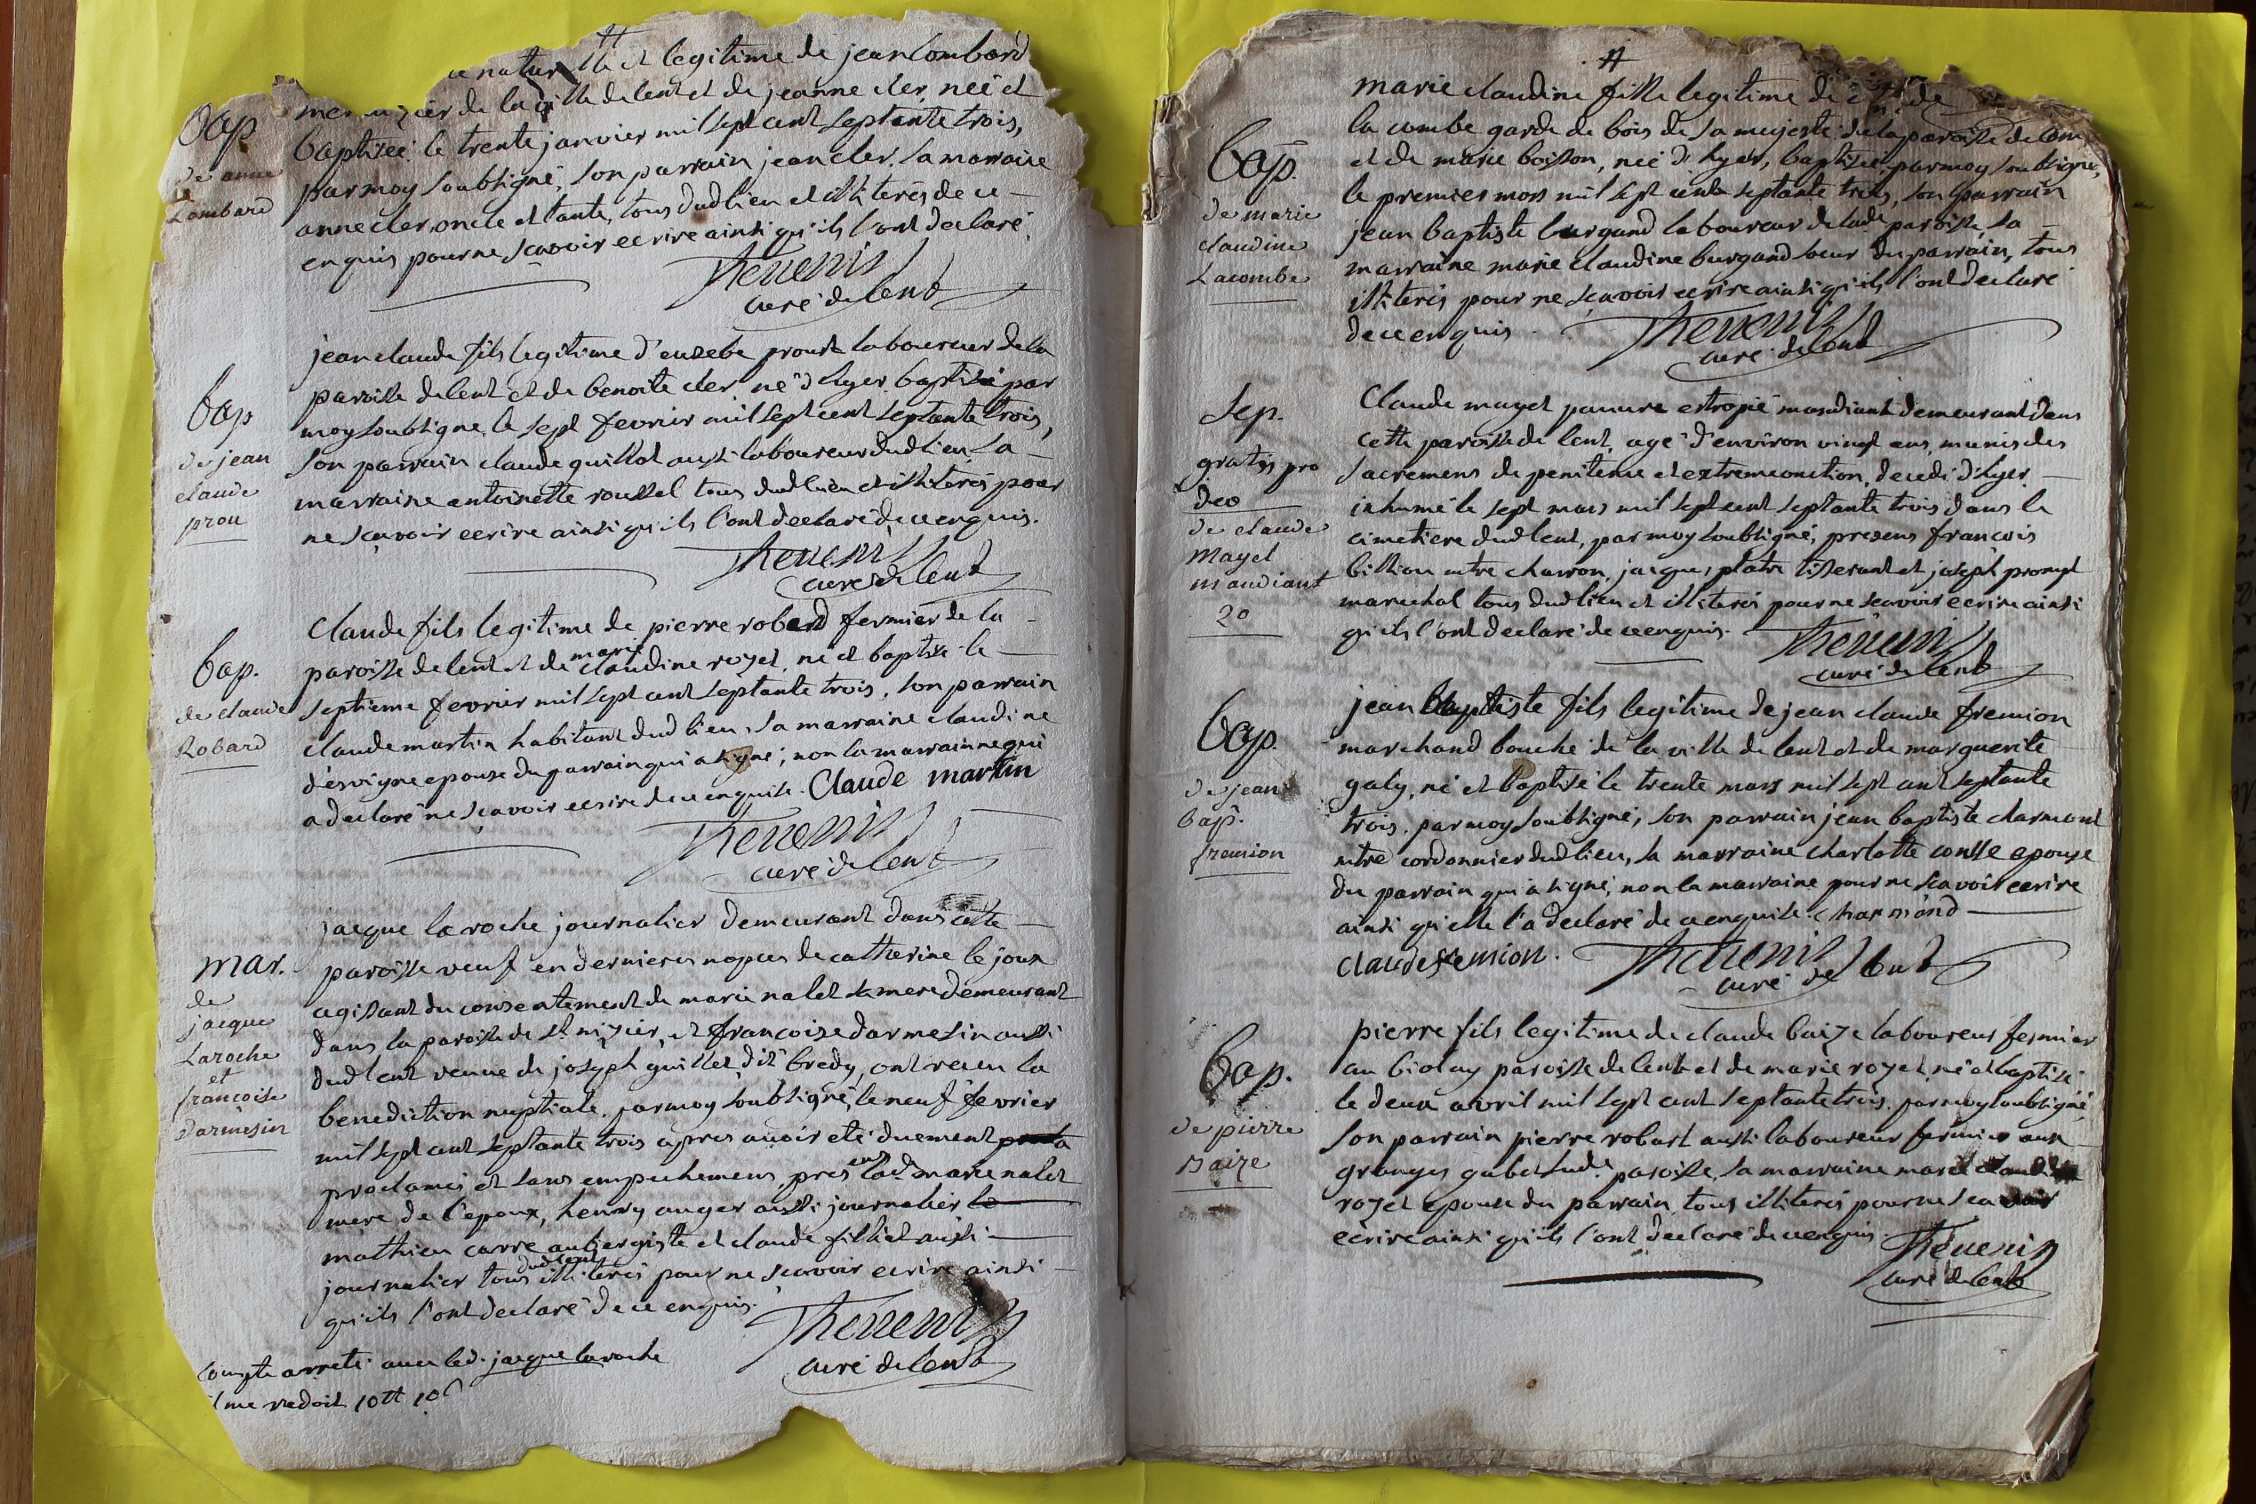 natur lle et legitime de jean lombard
bap
menuzier de la ville de lent et de jeanne cler, neé et
baptiseé le trente janvier mil sept cent septante trois,
de anne
Lombard
par moy soubsigné, son parrain jean cler, sa marraine
anne cler, oncle et tante, tous dud lieu et illiterés de ce
enquis pour ne scavoir ecrire ainsi qu'ils l'ont declaré.
Thevenin
curé de lent
bap
de jean
claude
prou
jean claude fils legitime d'euzebe proust laboureur de la
paroisse de lent et de benoite cler, né d'hyer baptisé par
moy soubsigné le sept fevrier mil sept cent septante trois,
son parrain claude quillot aussi laboureur dud lieu, sa
marraine antoinette roussel tous dud lieu et illiterés pour
ne scavoir ecrire ainsi qu'ils l'ont declaré de ce enquis.
Thevenin
curé de lent
bap.
de claude
Robard
Claude fils legitime de pierre robard fermier de la
paroisse de lent et de marie claudine royet, né et baptisé le
septieme fevrier mil sept cent septante trois, son parrain
claude martin habitant dud lieu, sa marraine claudine
desvigne epouse du parrain qui a signé, non la marrainne qui
a declaré ne scavoir ecrire de ce enquise. Claude martin
Thevenin
curé de lent
mar.
de
jacque
Laroche
et
francoise
Darmesin
jacque la roche journalier demeurant dans cette
paroisse veuf en dernieres nopces de catherine le joux
agissant du consentement de marie nalet sa mere demeurant
dans la paroisse de st nizier, et francoise darmesin aussi
dud lent veuve de joseph guillet dit bredy, ont receu la
benediction nuptiale, par moy soubsigné, le neuf fevrier
mil sept cent septante trois apres avoir eté duement
proclamés et sans empechemens, presens lade marie nalet
mere de l'epoux, henry auger aussi journalier
mathieu carre aubergiste et claude filliet aussi
journalier tous dud lent illiterés pour ne scavoir ecrire ainsi
qu'ils l'ont declaré de ce enquis.
Thevenin
curé de lent
compte arreté avec led. jacque laroche
il me redoit 10tt 10s
bap.
de marie
claudine
Lacombe
marie claudine fille legitime de
la combe garde de bois de sa majesté de la paroisse de
et de marie boisson, neé d'hyer, baptiseé par moy soubsigné,
le premier mars mil sept cent septante trois, son parrain
jean baptiste burgand laboureur de lade paroisse, sa
marraine marie claudine burgand soeur du parrain, tous
illiterés pour ne scavoir ecrire ainsi qu'ils l'ont declaré
de ce enquis.
Thevenin
curé de lent
Sep.
gratis pro
deo
de claude
Mayet
mandiant
20
Claude mayet pauvre estropié mandiant demeurant dans
cette paroisse de lent, agé d'environ vingt ans, munis des
sacremens de penitence et extremeonction, decedé d'hyer,
inhumé le sept mars mil sept cent septante trois dans le
cimetiere dud lent, par moy soubsigné, presens francois
billion mtre charron, jacques platre tisserant et joseph promyt
marechal tous dud lieu et illiterés pour ne scavoir ecrire ainsi
qu'ils l'ont declaré de ce enquis.
Thevenin
curé de lent
bap.
de jean
bap.
fremion
jean baptiste fils legitime de jean claude fremion
marchand bouché de la ville de lent et de marguerite
galy, né et baptisé le trente mars mil sept cent septante
trois, par moy soubsigné, son parrain jean baptiste charmond
mtre cordonnier dud lieu, sa marraine charlotte contte epouse
du parrain qui a signé, non la marraine pour ne scavoir ecrire
ainsi qu'elle l'a declaré de ce enquise. charmond
Claude fremion.
Thevenin
curé de lent
bap.
de pierre
Baize
pierre fils legitime de claude baize laboureur fermier
au biolay paroisse de lent et de marie royet, né et baptisé
le deux avril mil sept cent septante trois, par moy soubsigné
son parrain pierre robart aussi laboureur fermier aux
granges gabet sude paroisse, sa marraine marie claudine
royet epouse du parrain, tous illiterés pour ne scavoir
ecrire ainsi qu'ils l'ont declaré de ce enquis.
Thevenin
curé de lent